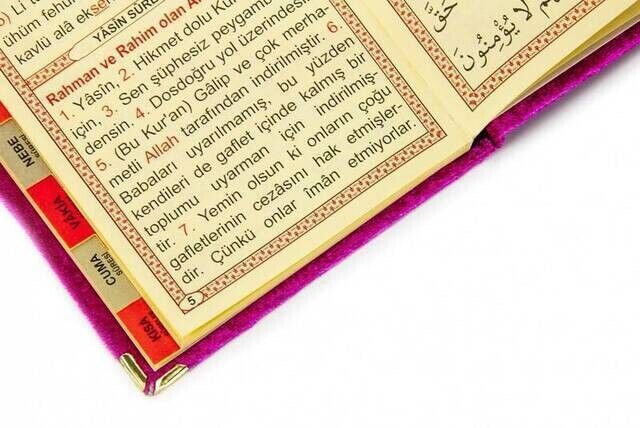 ö) Li t
ühüm fehü
kavlü alâ eksen
YÂSİN SÛR
Rahman ve Rahim olan A
1. Yâsin, 2. Hikmet dolu Kur
için, 3. Sen şüphesiz peygam
densin, 4. Dosdoğru yol üzerindesi
5. (Bu Kur'an) Gâlip ve çok merha-
metli Allah tarafından indirilmiştir. 6.
Babaları uyarılmamış, bu yüzden
kendileri de gaflet içinde kalmış bir
toplumu uyarman için indirilmiş-
tir. 7. Yemin olsun ki onların çoğu
gafletlerinin cezasını hak etmişler-
dir. Çünkü onlar îmân etmiyorlar.
5
NEBE
VÂKIA
CUMA
SÛRESİ
KISA
حَقَّ
لَا يُؤْمِنُونَ